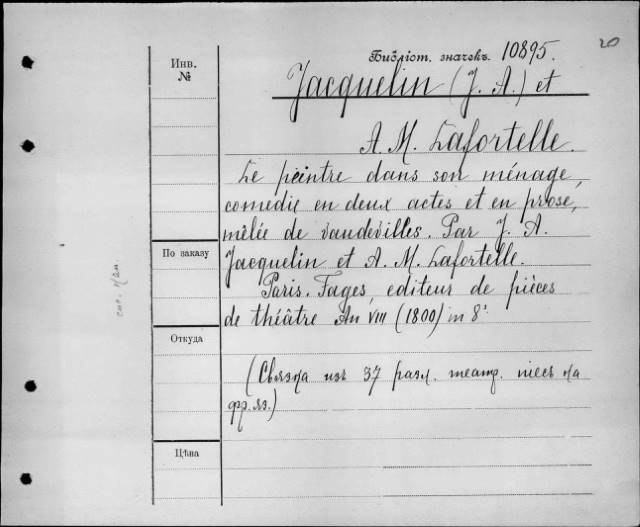 20
Библіот. значекъ. 10895.
Инв.
№
Jacquelin (J. A.) et
A. M. Lafortelle.
Le peintre dans son ménage,
comedie en deux actes et en prose,
mêlée de vaudevilles. Par J. A.
По заказу
Jacquelin et A. M. Lafortelle.
Paris. Fages, editeur de pièces
de théâtre An VIII (1800) in 8°
Откуда
(Связка изъ 37 разл. театр. пиес на
фр. яз.)
Цѣна